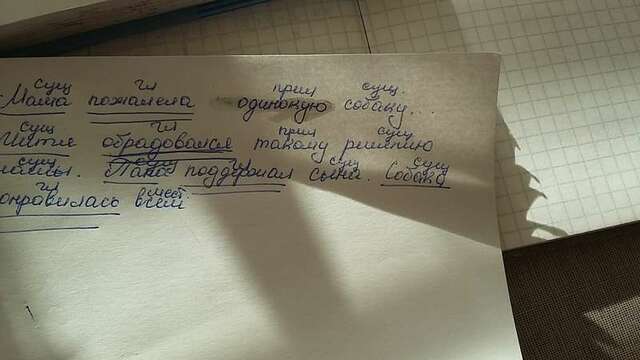 сущ гл прил сущ.
Мама пожалела одинокую собаку...
сущ гл прил сущ
Митя обрадовался такому решению
сущ сущ гл сущ сущ
мамы. Папа поддержал сына. Собака
гл мест.
онравилась всем